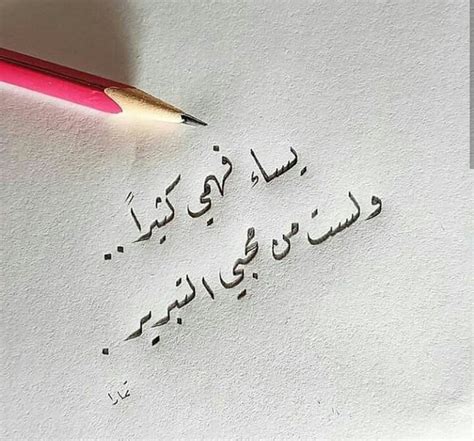 يساء فهمي كثيراً ..
ولست من محبي التبرير .
تمارا